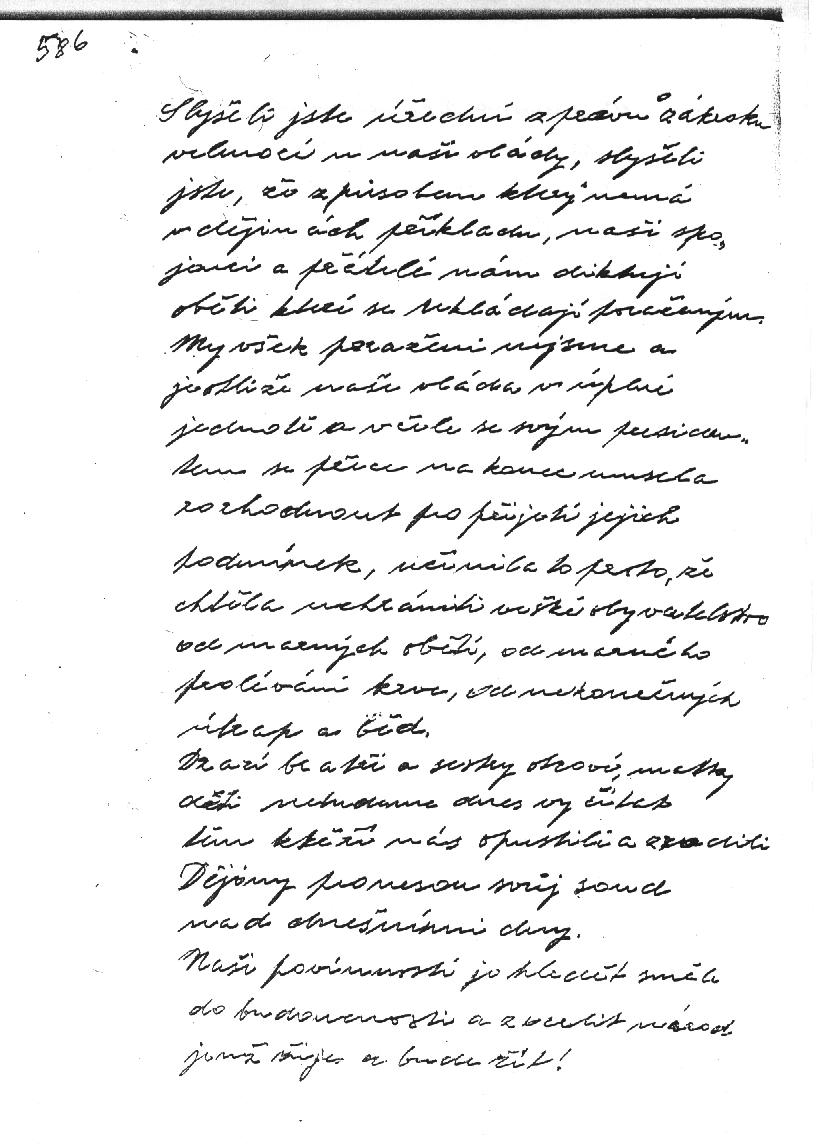 586
Slyšeli jste úřední zprávu o zákroku
velmocí u naší vlády, slyšeli
jste, že způsobem který nemá
v dějinách příkladu, naši spo„
jenci a přátelé nám diktují
oběti které se ukládají poraženým.
My však poraženi nejsme a
jestliže naše vláda v úplné
jednotě a v čele se svým presiden„
tem se přece na konec musela
rozhodnout pro přijetí jejich
podmínek, učinila to proto, že
chtěla uchrániti vešké obyvatelstvo
od marných obětí, od marného
prolévání krve, od nekonečných
útrap a běd.
Drazí bratři a sestry otcové, matky
děti nebudeme dnes vyčítat
těm kteří nás opustili a zradili
Dějiny pronesou svůj soud
nad dnešními dny.
Naši povinností je hledět směle
do budoucnosti a zocelit národ
jenž žije a bude žít!